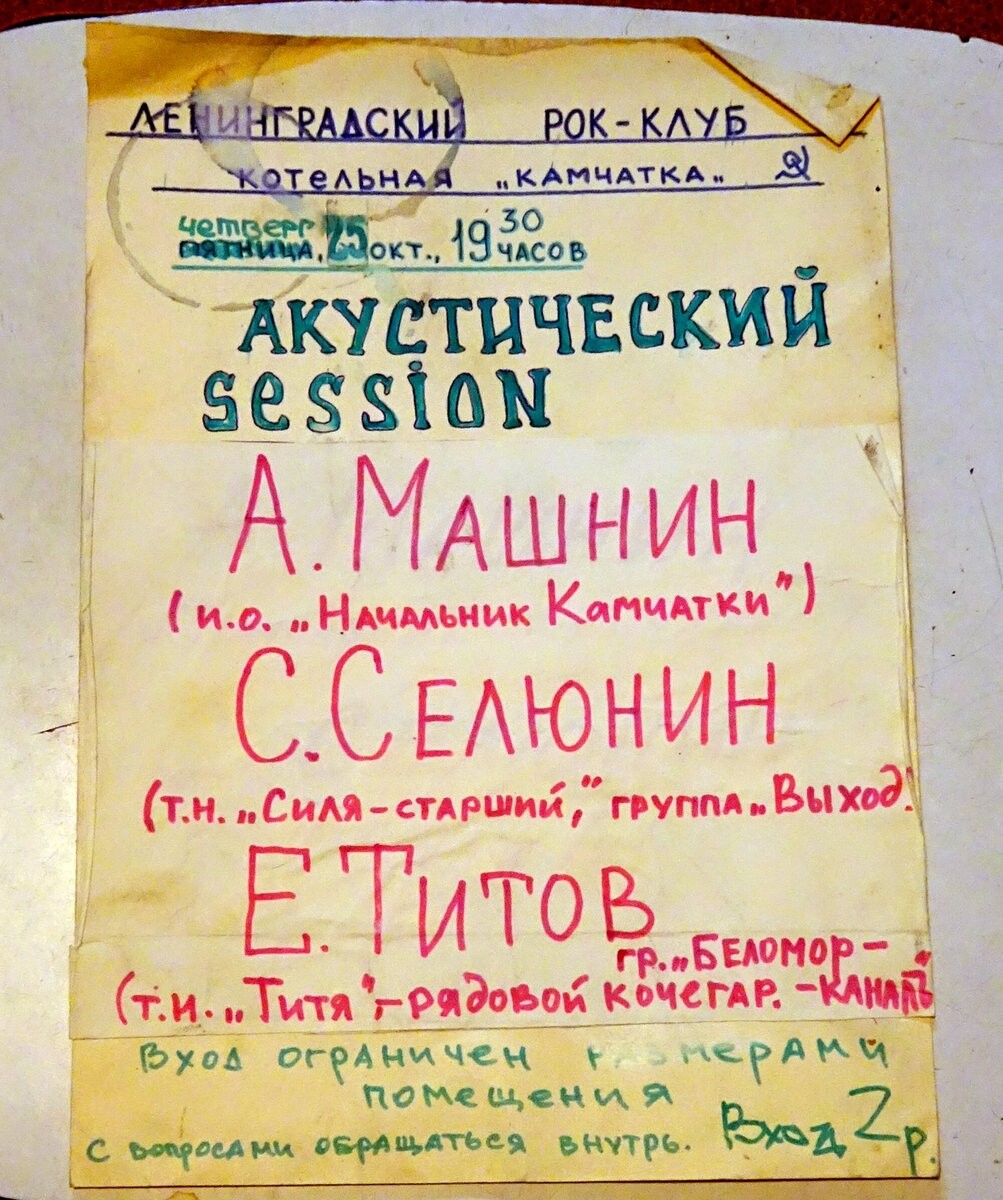 ЛЕНИНГРАДСКИЙ РОК-КЛУБ
КОТЕЛЬНАЯ „КАМЧАТКА„ ☭
четверг
ПЯТНИЦА, 25 ОКТ., 19 30 ЧАСОВ
АКУСТИЧЕСКИЙ
SeSSiON
А. МАШНИН
(и.о. „НАЧАЛЬНИК КАМЧАТКИ”)
С. СЕЛЮНИН
(т.н. „СИЛЯ-СТАРШИЙ,” ГРУППА „ВЫХОД!
Е. ТИТОВ
гр. „БЕЛОМОР-
(т.и. „ТИТЯ”,-РЯДОВОЙ КОЧЕГАР. -КАНАЛЪ”
ВХОД ОГРАНИЧЕН РАЗМЕРАМИ
ПОМЕЩЕНИЯ
С ВОПРОСАМИ ОБРАЩАТЬСЯ ВНУТРЬ. Вход 2 р.